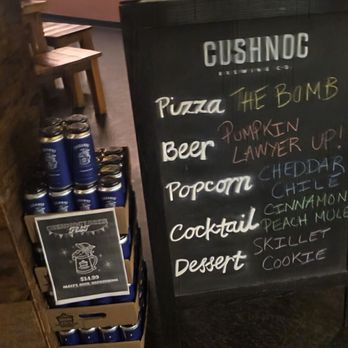 CUSHNOC
BREWING CO.
Pizza THE BOMB
Beer PUMPKIN
LAWYER UP!
Popcorn CHEDDAR
CHILE
Cocktail CINNAMON
PEACH MULE
Dessert SKILLET
COOKIE
$14.99